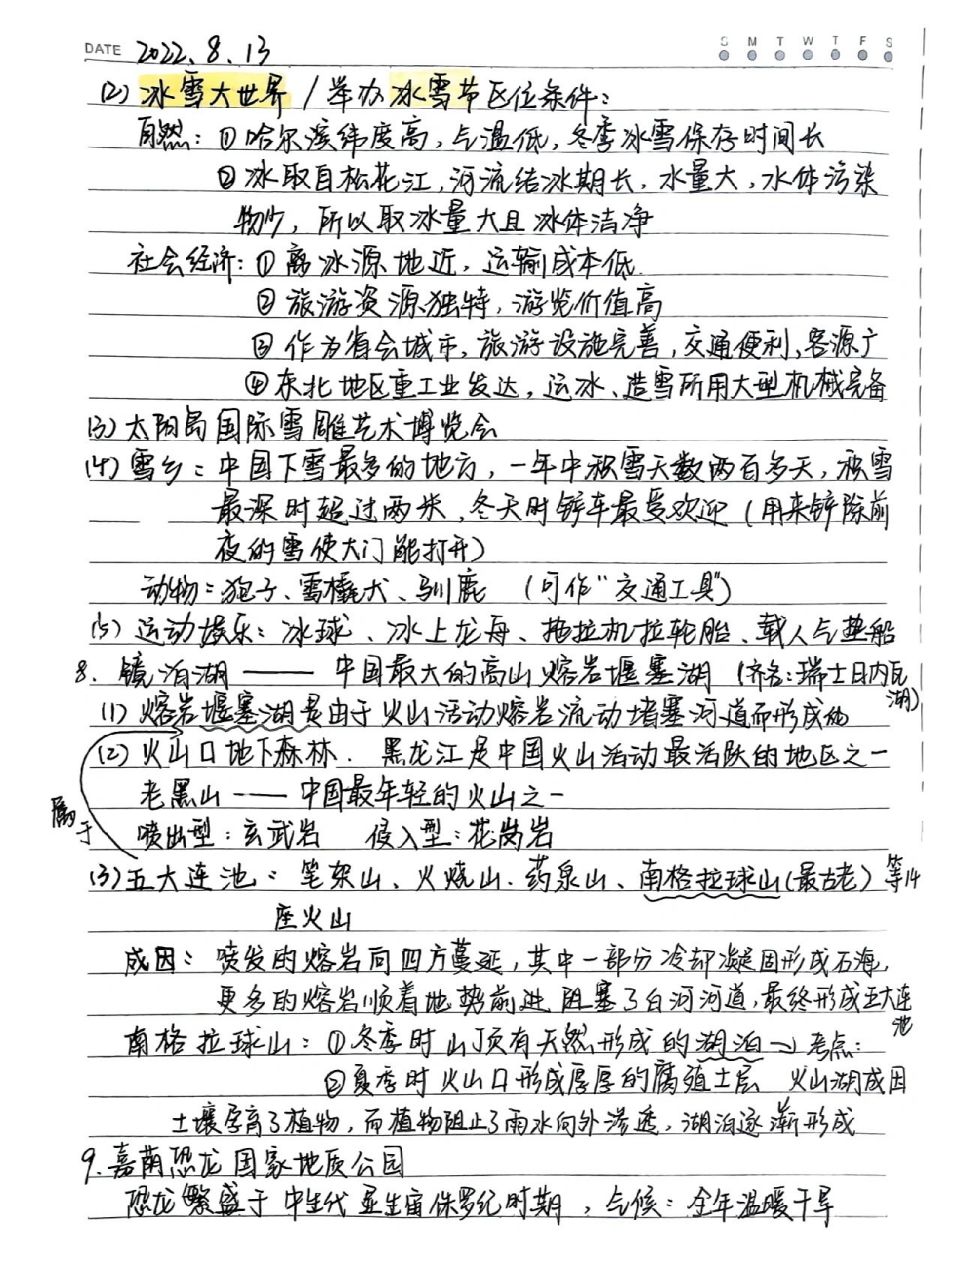 DATE 2022.8.13
S M T W T F S
(2) 冰雪大世界 / 举办冰雪节区位条件：
自然：①哈尔滨纬度高，气温低，冬季冰雪保存时间长
②冰取自松花江，河流结冰期长，水量大，水体污染
物少，所以取冰量大且冰体洁净
社会经济：①离冰源地近，运输成本低
②旅游资源独特，游览价值高
③作为省会城市，旅游设施完善，交通便利，客源广
④东北地区重工业发达，运冰、造雪所用大型机械完备
(3) 太阳岛国际雪雕艺术博览会
(4) 雪乡：中国下雪最多的地方，一年中积雪天数两百多天，积雪
最深时超过两米，冬天时铲车最受欢迎（用来铲除前
夜的雪使大门能打开）
动物：狍子、雪橇犬、驯鹿 （可作“交通工具”）
(5) 运动娱乐：冰球、冰上龙舟、拖拉机拉轮胎、载人气垫船
8. 镜泊湖 —— 中国最大的高山熔岩堰塞湖（齐名：瑞士日内瓦
湖）
(1) 熔岩堰塞湖是由于火山活动熔岩流动堵塞河道而形成的
(2) 火山口地下森林. 黑龙江是中国火山活动最活跃的地区之一
老黑山 —— 中国最年轻的火山之一
属于
喷出型：玄武岩 侵入型：花岗岩
(3) 五大连池：笔架山、火烧山、药泉山、南格拉球山（最古老）等14
座火山
成因：喷发的熔岩向四方蔓延，其中一部分冷却凝固形成石海，
更多的熔岩顺着地势前进，阻塞了白河河道，最终形成五大连
池
南格拉球山：①冬季时山顶有天然形成的湖泊→考点：
②夏季时火山口形成厚厚的腐殖土层 火山湖成因
土壤孕育了植物，而植物阻止了雨水向外渗透，湖泊逐渐形成
9. 嘉荫恐龙国家地质公园
恐龙繁盛于中生代显生宙侏罗纪时期，气候：全年温暖干旱